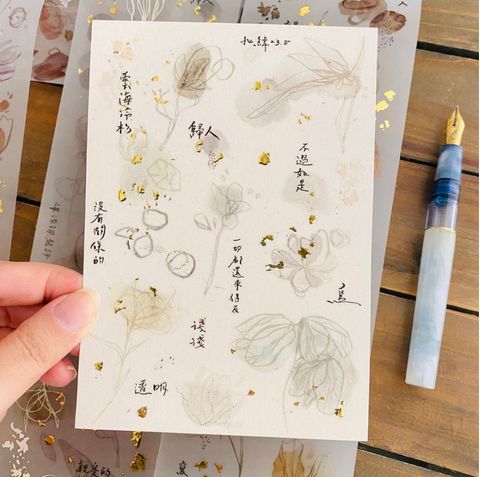 北緯23.5
雲海冷杉
歸人
不過如是
沒有關係的
一切都還來得及
島
淺淺
透明
親愛的